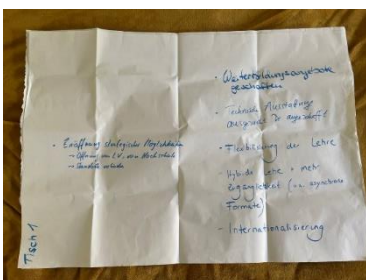 • Eröffnung strategischer Möglichkeiten
→ Öffnung von LV, von Hochschule
→
• Weiterbildungsangebote
geschaffen
• Technische Ausstattung
angeschafft
• Flexibilisierung der Lehre
- Hybride Lehre + mehr
Zugänglichkeit (v.a. asynchrone
Formate)
- Internationalisierung
Tisch 1